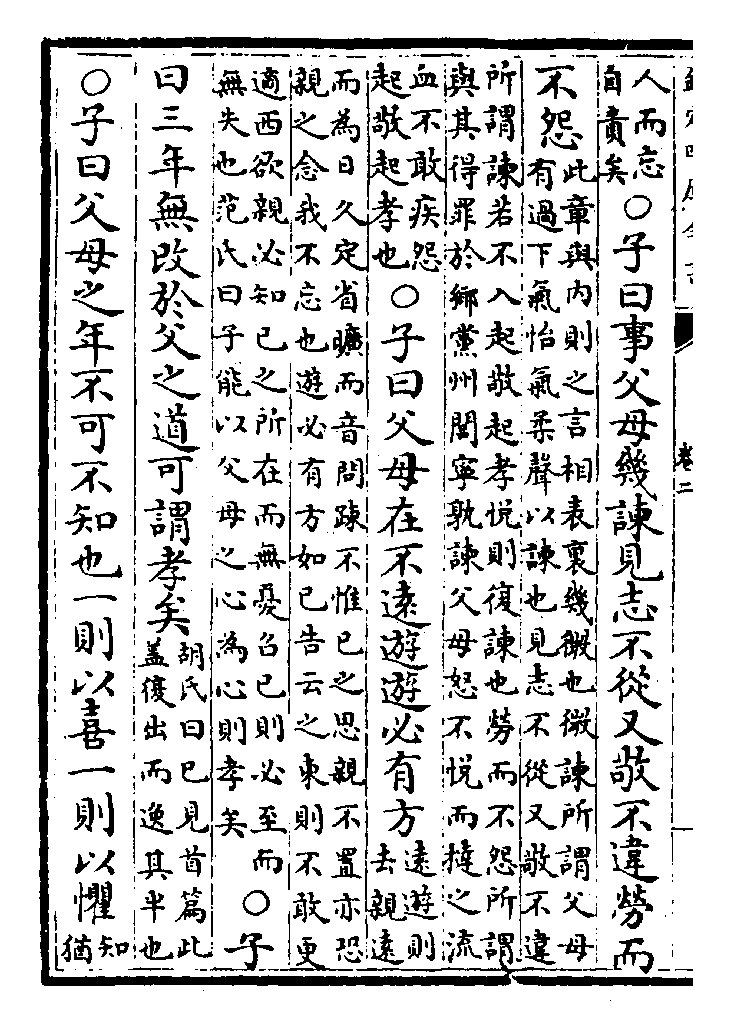 卷二
人而忘
自責矣
○子曰事父母幾諫見志不從又敬不違勞而
不怨
此章與内則之言相表裏幾微也微諫所謂父母
有過下氣怡氣柔聲以諫也見志不從又敬不違
所謂諫若不入起敬起孝悦則復諫也勞而不怨所謂
與其得罪於鄉黨州閭寧孰諫父母怒不悦而撻之流
血不敢疾怨
起敬起孝也
○子曰父母在不逺遊遊必有方
逺遊則
去親逺
而為日久定省曠而音問踈不惟已之思親不置亦恐
親之念我不忘也遊必有方如已告云之東則不敢更
適西欲親必知已之所在而無憂召已則必至而
無失也范氏曰子能以父母之心為心則孝矣
○子
曰三年無改於父之道可謂孝矣
胡氏曰已見首篇此
葢復出而逸其半也
○子曰父母之年不可不知也一則以喜一則以懼
知
猶